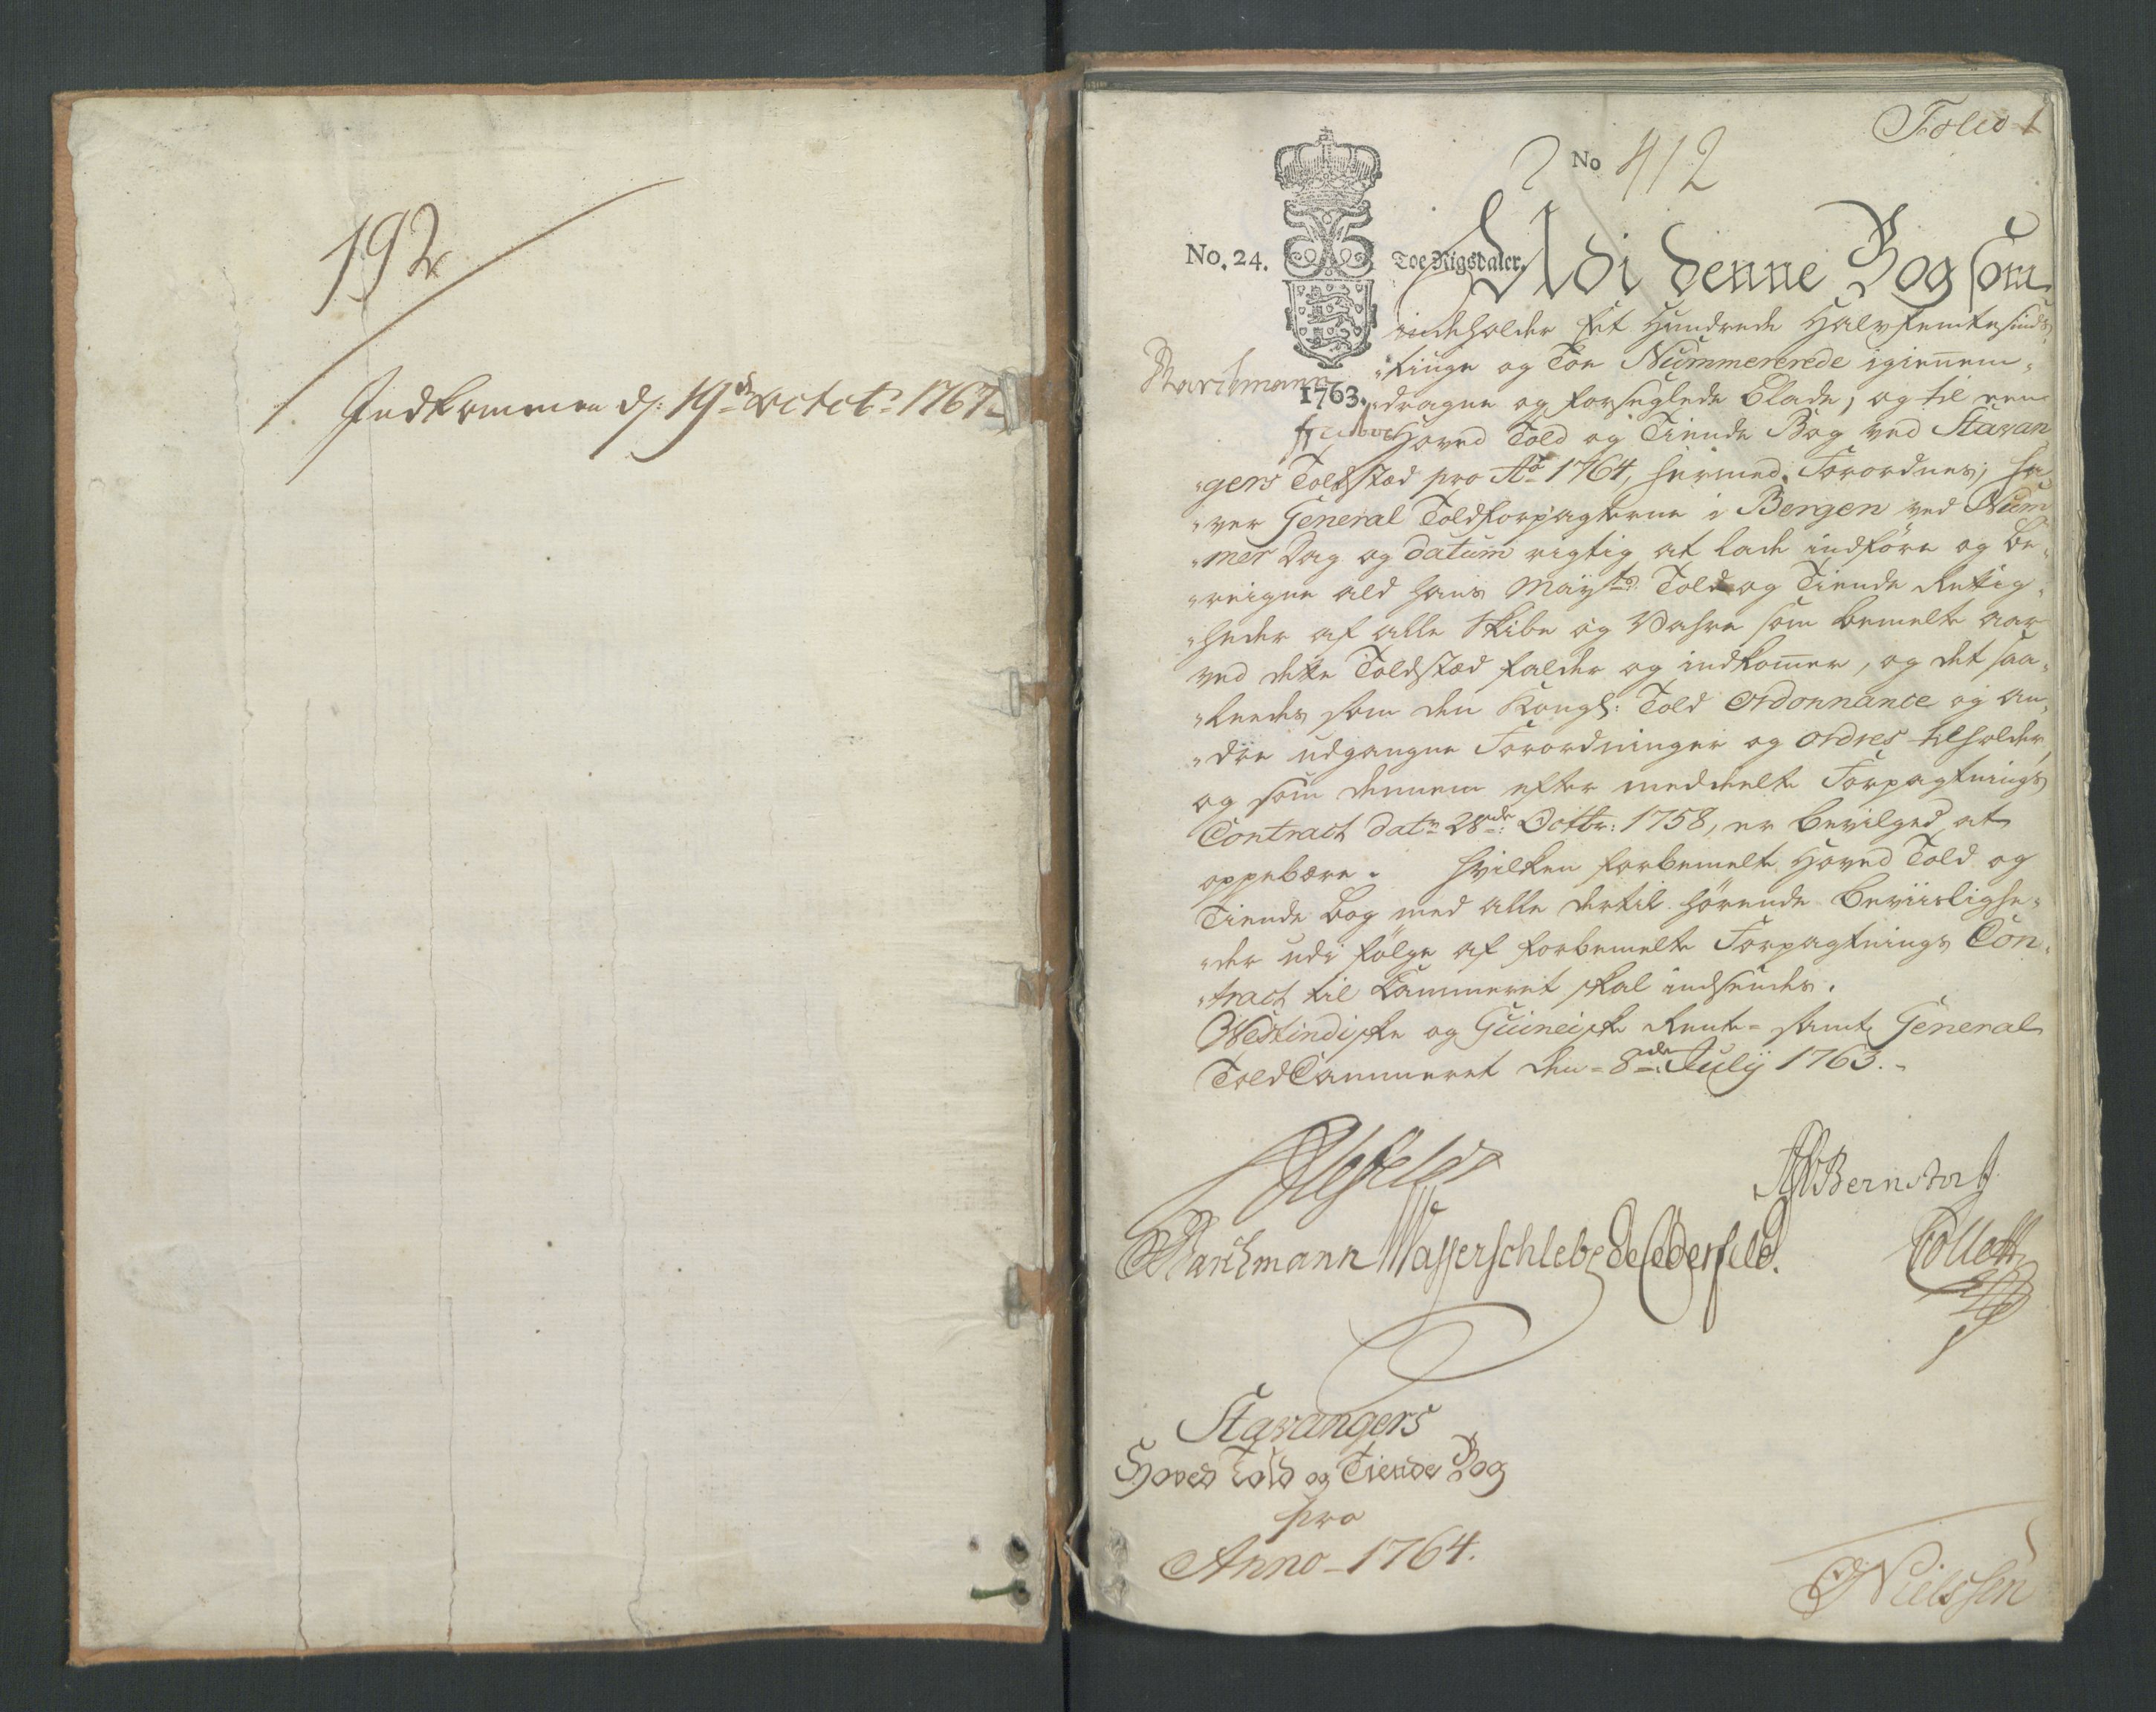 192
Indkommen d: 19de octobr 1767
Folio 1
No 412
No. 24.
Toe Rigsdaler.
Udi denne Bog som
indeholder Et Hundrede Halvfemtesinds-
"tiuge og Toe Nummererede igiennem-
Bartzmann
1763.
"dragne og forseglede Blade, og til een
Hoved Told og Tiende Bog ved Stavan
"gers Toldstæd pro Ao 1764, hermed Forordnes; ha
"ver General Toldforpagterne i Bergen ved Num
"mer Dag og datum rigtig at lade indføre og be-
"reigne ald Hans Mayts Told og Tiende Rettig-
"heder af alle Skibe og Vahre som bemelte aar
ved dette Toldstæd falder og indkomer, og det saa-
"leedes som den Kongl: Told Ordonnance og an-
"dre udgangne Forordninger og ordres tilholder,
og som dennem efter meddeelte Forpagtnings
Contract datr 28de Octbr: 1758, er bevilged at
oppebære. Hvilken forbemelte Hoved Told og
Tiende bog med alle dertil hørende beviislighe-
"der udi følge af forbemelte Forpagtnings Con-
"tract til Cammeret skal indsendes.
Westindiske og Guineiske Rente- samt General
ToldCammeret den 8de July 1763.
Ahlefeldt
AP Bernstorf
Bartzmann Wasserschlebe de Cederfeld. Collett
Stavangers
Hoved Told og Tiende Bog
pro
Anno 1764.
Nielssen